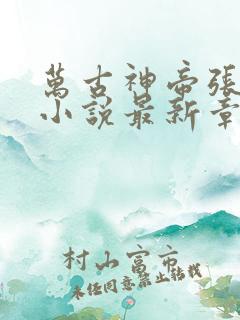 萬古神帝張
小說最新章
村山富市
未經同意禁止轉載